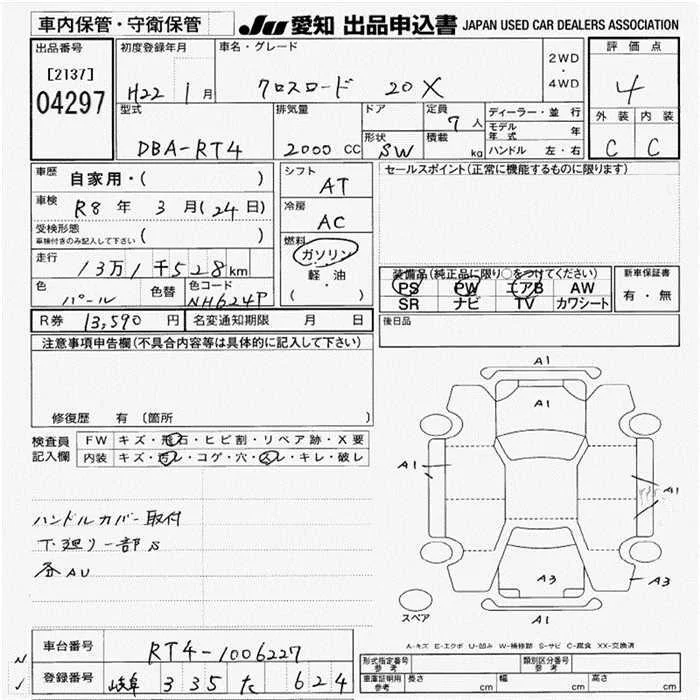 車内保管・守衛保管
JU 愛知 出品申込書 JAPAN USED CAR DEALERS ASSOCIATION
出品番号
[2137]
04297
初度登録年月
H22 1月
車名・グレード
クロスロード 20X
2WD
・
4WD
評価点
4
外装 内装
C C
型式
DBA-RT4
排気量
2000 CC
ドア
形状
SW
定員
7 人
積載
kg
ディーラー・並行
モデル年式 年
ハンドル 左・右
車歴
自家用・( )
車検
R8 年 3 月(24日)
受検形態
車検付きのみ記入して下さい ( )
走行
13万1千528km
色
パール
色替
色コード
NH624P
シフト
AT
冷房
AC
燃料
ガソリン
軽油
( ・ )
セールスポイント(正常に機能するものに限ります)
装備品(純正品に限り○をつけてください)
PS PW エアB AW
SR ナビ TV カワシート
新車保証書
有・無
R券 13,590 円
名変通知期限 月 日
後日品
注意事項申告欄(不具合内容等は具体的に記入して下さい)
修復歴 有 〔箇所
検査員
記入欄
FW キズ・飛石・ヒビ割・リペア跡・X要
内装 キズ・汚レ・コゲ・穴・スレ・キレ・破レ
ハンドルカバー取付
下廻り一部S
各AU
A1
A1
A1
A1
A3
A3
A1
スペア
A-キズ E-エクボ U-凹み W-補修跡 S-サビ C-腐食 XX-交換済
車台番号
RT4-1006227
登録番号
岐阜 335 た 624
形式指定番号
参考
類別区分番号
参考
車庫証明用
参考
長さ cm 幅 cm 高さ cm